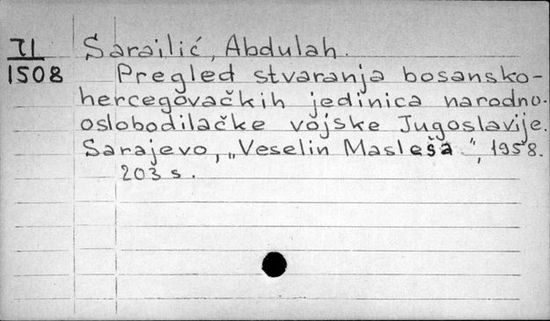 II
1508
Sarailić, Abdulah.
Pregled stvaranja bosansko-
hercegovačkih jedinica narodno-
oslobodilačke vojske Jugoslavije.
Sarajevo, „Veselin Masleša", 1958.
203 s.